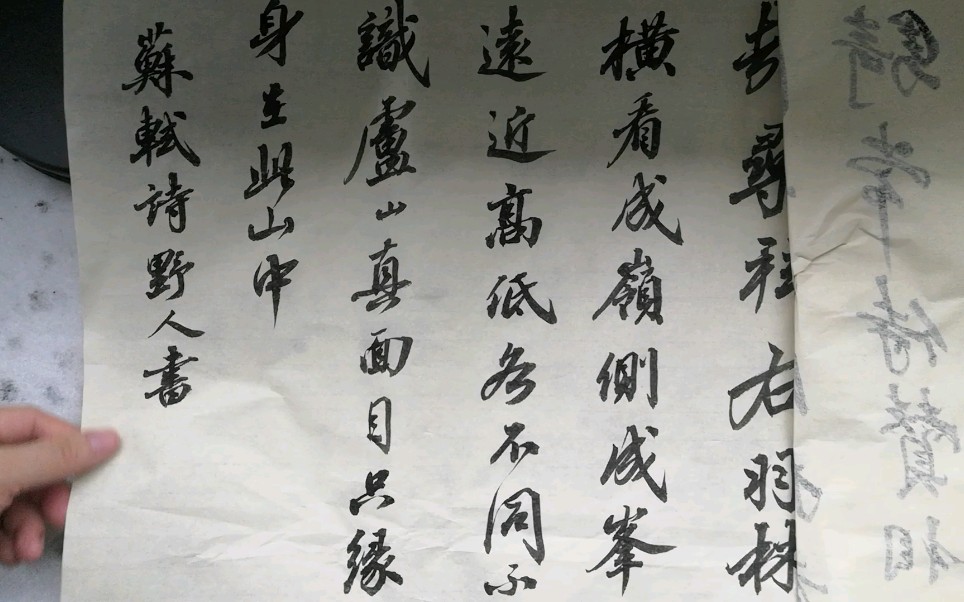 尋
右羽林
橫看成嶺側成峯
遠近髙低各不同不
識盧山真面目只緣
身在此山中
蘇軾詩野人書